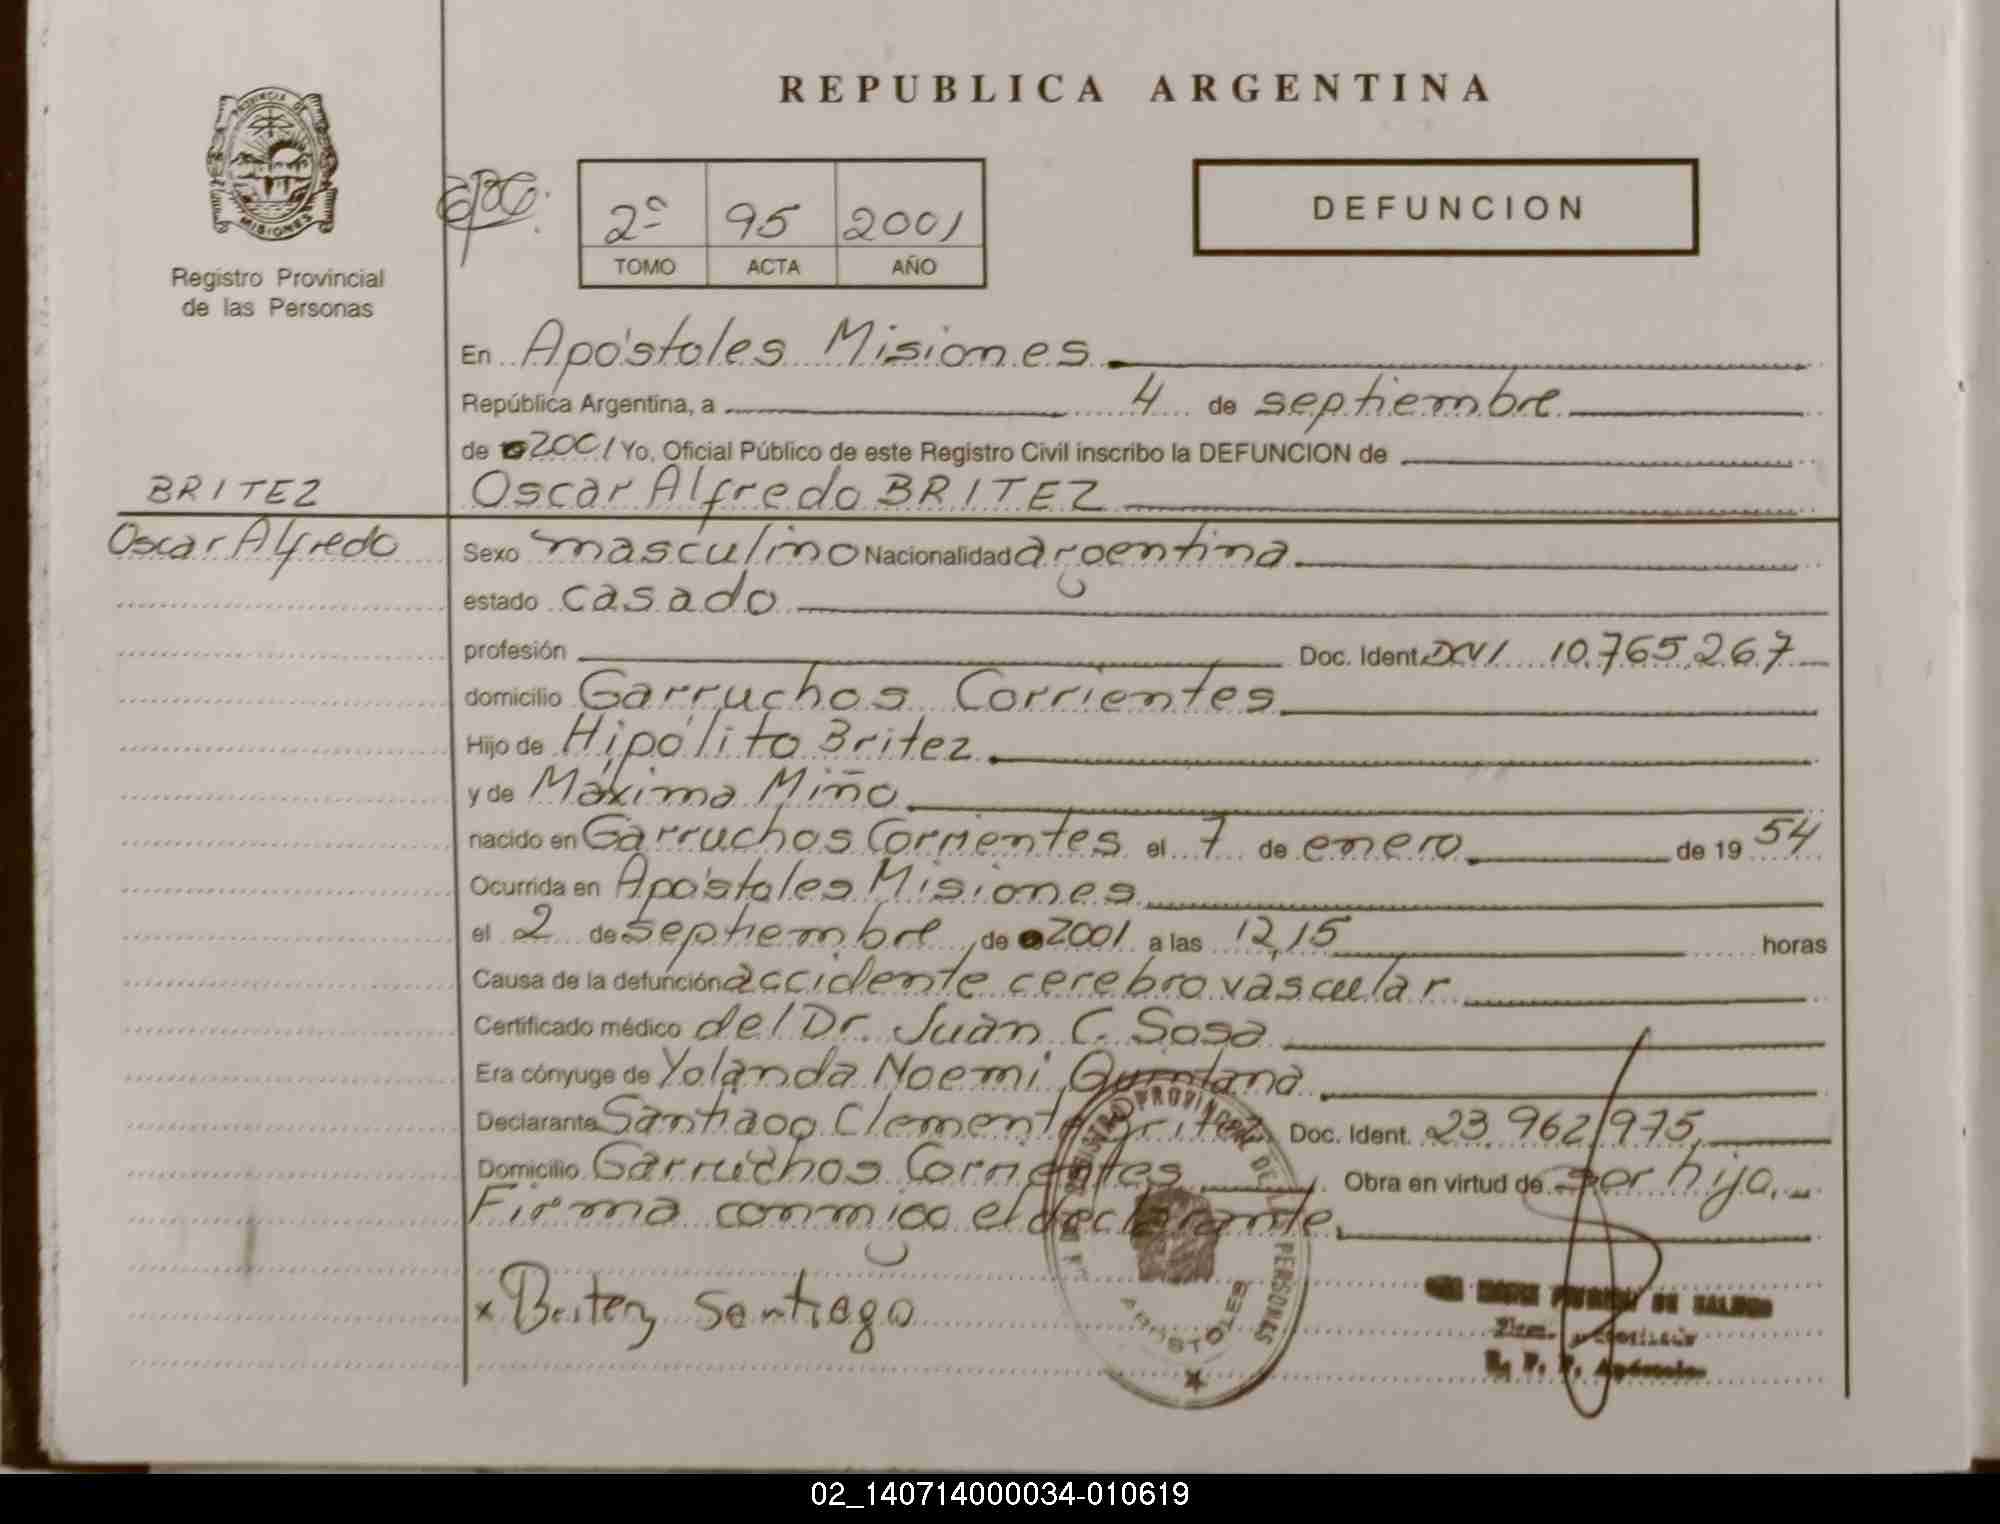 REPUBLICA ARGENTINA
PROVINCIA DE
MISIONES
Registro Provincial
de las Personas
2º 95 2001
TOMO ACTA AÑO
DEFUNCION
En Apóstoles Misiones
República Argentina, a 4 de septiembre
de 2001 Yo, Oficial Público de este Registro Civil inscribo la DEFUNCION de
BRITEZ
Oscar Alfredo BRITEZ
Oscar Alfredo
Sexo masculino Nacionalidad argentina
estado casado
profesión Doc. Ident. DNI 10.765.267
domicilio Garruchos Corrientes
Hijo de Hipólito Britez
y de Máxima Miño
nacido en Garruchos Corrientes el 7 de enero de 19 54
Ocurrida en Apóstoles Misiones
el 2 de septiembre de 2001 a las 12,15 horas
Causa de la defunción accidente cerebro vascular
Certificado médico del Dr. Juan C. Sosa
Era cónyuge de Yolanda Noemi Quintana
Declarante Santiago Clemente Britez Doc. Ident. 23.962.975,
Domicilio Garruchos Corrientes Obra en virtud de ser hijo.
Firma conmigo el declarante.
x Britez Santiago
REGISTRO PROVINCIAL DE LAS PERSONAS
APOSTOLES
R. P. P. Apóstoles
02_140714000034-010619